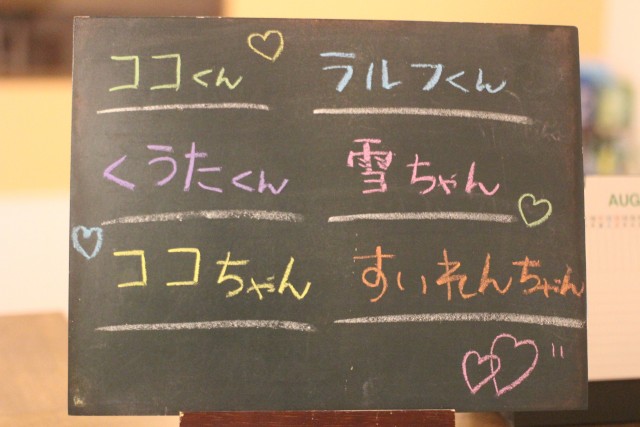 ココくん
ラルフくん
くうたくん
雪ちゃん
ココちゃん
すいれんちゃん
AUG